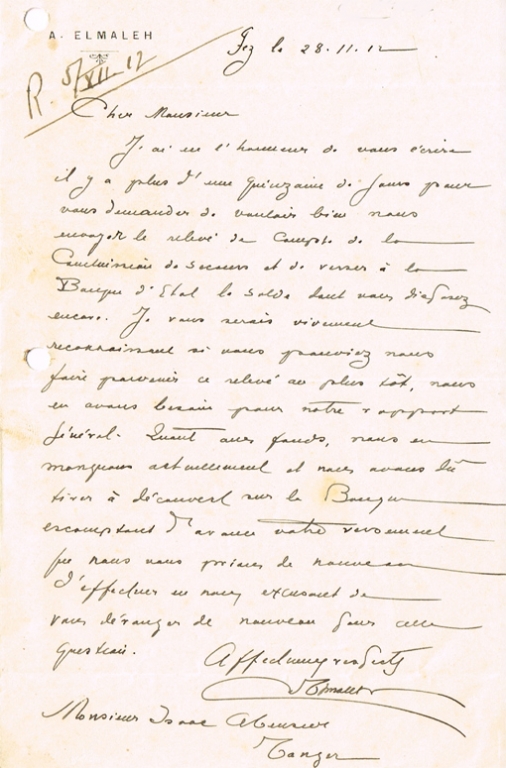 A. ELMALEH
Fez le 28.11.12
R. 5/XII.12
Cher Monsieur
J'ai eu l'honneur de vous écrire
il y a plus d'une quinzaine de jours pour
vous demander de vouloir bien nous
envoyer le relevé de Compte de la
Commission de Secours et de verser à la
Banque d'Etat le solde dont vous disposez
encore. Je vous serais vivement
reconnaissant si vous pouviez nous
faire parvenir ce relevé au plus tôt, nous
en avons besoin pour notre rapport
général. Quant aux fonds, nous en
manquons actuellement et nous avons dû
tirer à découvert sur la Banque
escomptant d'avance votre versement
que nous vous prions de nouveau
d'effectuer en nous excusant de
vous déranger de nouveau pour cette
question.
Elmaleh
Monsieur Isaac
Tanger